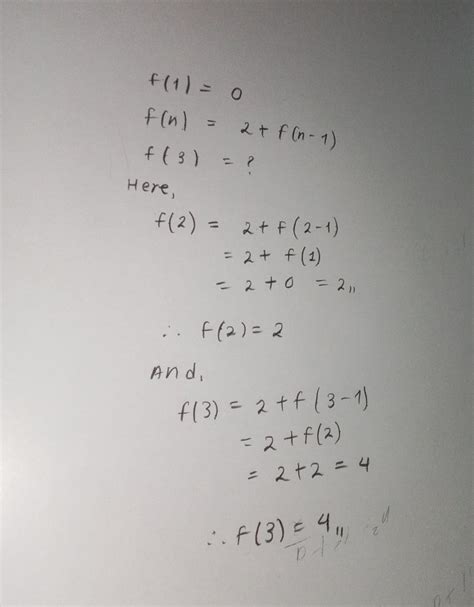 f(1) = 0
f(n) = 2 + f(n-1)
f(3) = ?
Here,
f(2) = 2 + f(2-1)
= 2 + f(1)
= 2 + 0 = 2,,
∴ f(2) = 2
And,
f(3) = 2 + f(3-1)
= 2 + f(2)
= 2 + 2 = 4
∴ f(3) = 4,,